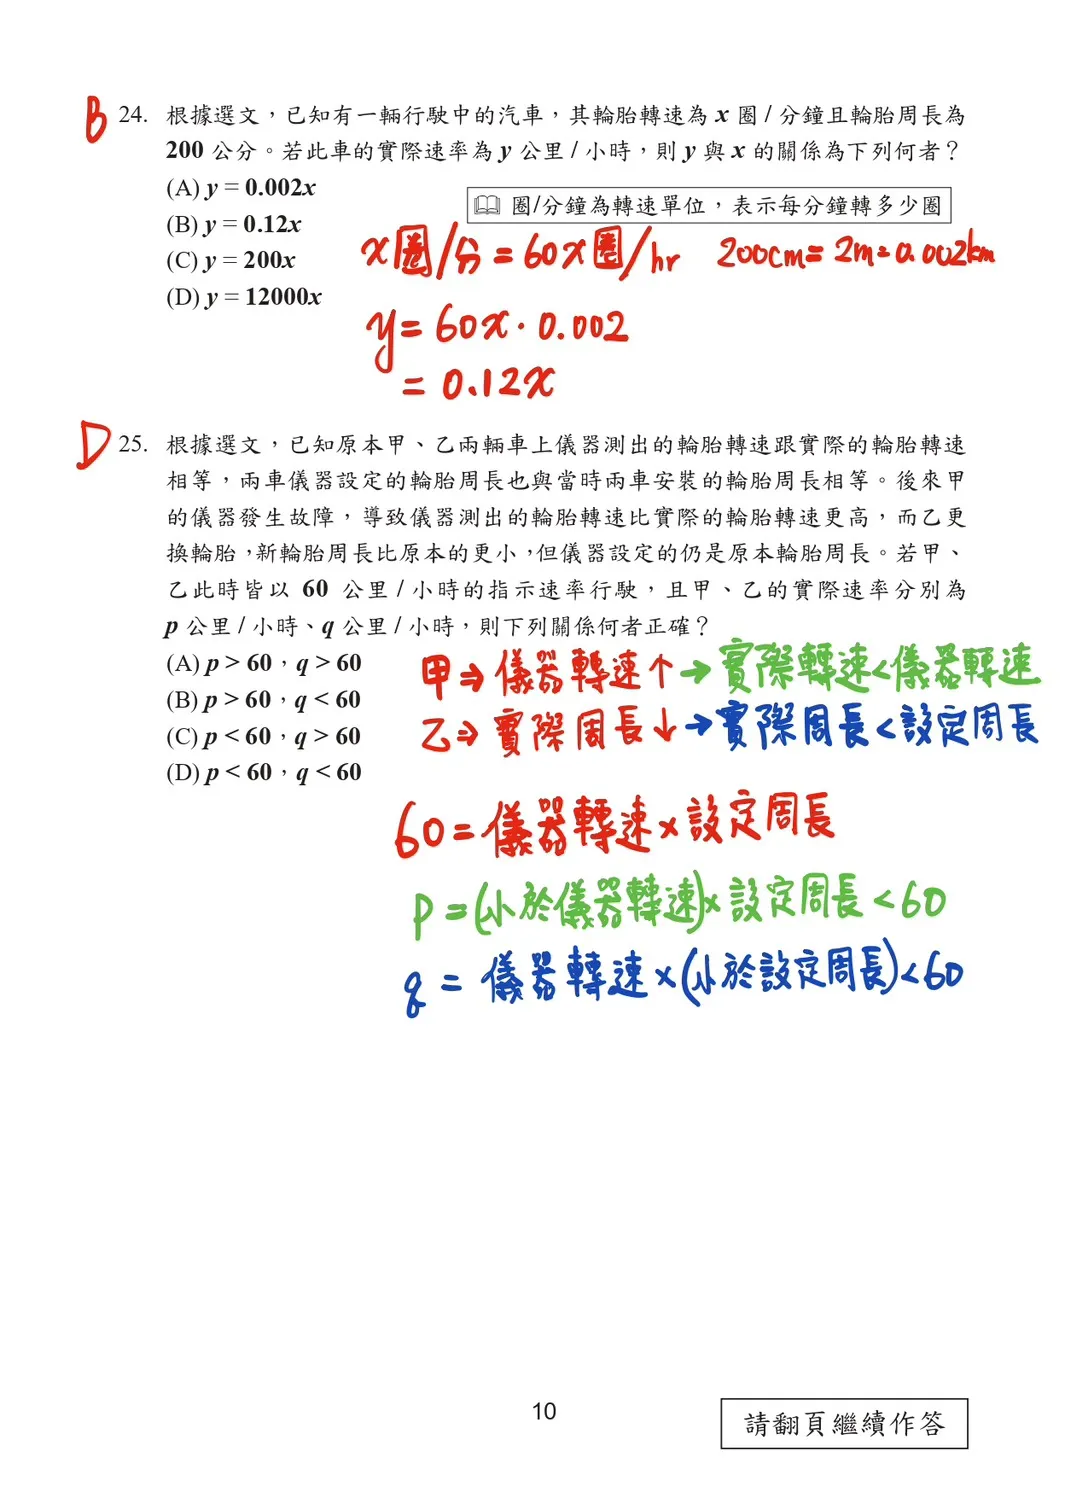 B 24. 根據選文，已知有一輛行駛中的汽車，其輪胎轉速為 x 圈 / 分鐘且輪胎周長為
200 公分。若此車的實際速率為 y 公里 / 小時，則 y 與 x 的關係為下列何者？
(A) y = 0.002x
圈/分鐘為轉速單位，表示每分鐘轉多少圈
(B) y = 0.12x
(C) y = 200x
x圈/分 = 60x圈/hr 200cm = 2m = 0.002km
(D) y = 12000x
y = 60x · 0.002
= 0.12x
D 25. 根據選文，已知原本甲、乙兩輛車上儀器測出的輪胎轉速跟實際的輪胎轉速
相等，兩車儀器設定的輪胎周長也與當時兩車安裝的輪胎周長相等。後來甲
的儀器發生故障，導致儀器測出的輪胎轉速比實際的輪胎轉速更高，而乙更
換輪胎，新輪胎周長比原本的更小，但儀器設定的仍是原本輪胎周長。若甲、
乙此時皆以 60 公里 / 小時的指示速率行駛，且甲、乙的實際速率分別為
p 公里 / 小時、q 公里 / 小時，則下列關係何者正確？
(A) p > 60，q > 60
甲⇒儀器轉速↑→實際轉速<儀器轉速
(B) p > 60，q < 60
(C) p < 60，q > 60
乙⇒實際周長↓→實際周長<設定周長
(D) p < 60，q < 60
60 = 儀器轉速×設定周長
p = (小於儀器轉速)×設定周長 < 60
q = 儀器轉速×(小於設定周長) < 60
10
請翻頁繼續作答